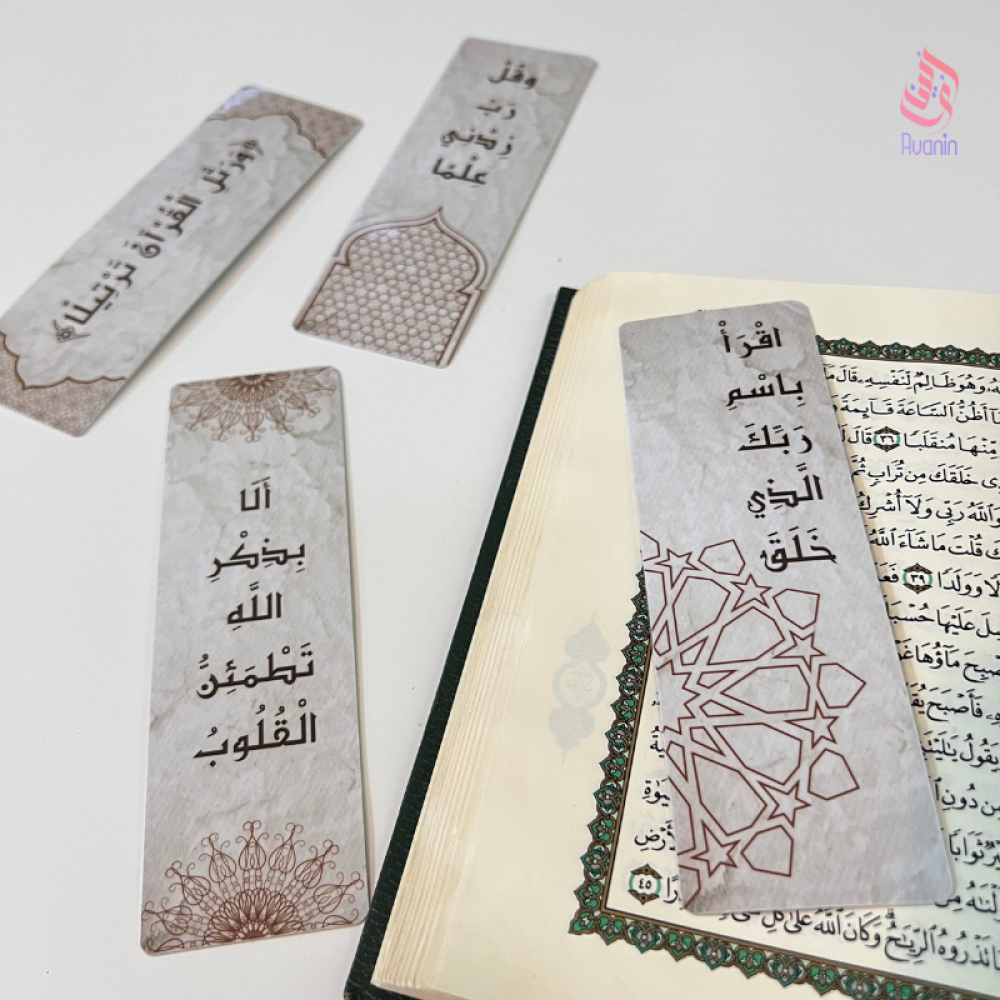 Avanin
وَقُلْ
رَبِّ
زِدْنِي
عِلْمًا
﴿وَرَتِّلِ الْقُرْآنَ تَرْتِيلًا﴾
أَلَا
بِذِكْرِ
اللَّهِ
تَطْمَئِنُّ
الْقُلُوبُ
اقْرَأْ
بِاسْمِ
رَبِّكَ
الَّذِي
خَلَقَ
وَهُوَ ظَالِمٌ لِّنَفْسِهِ قَالَ مَا
أَظُنُّ السَّاعَةَ قَائِمَةً
مِّنْهَا مُنقَلَبًا ٣٦ قَالَ
خَلَقَكَ مِن تُرَابٍ ثُمَّ
اللَّهُ رَبِّي وَلَا أُشْرِكُ
قُلْتَ مَا شَاءَ اللَّهُ
وَوَلَدًا ٣٩
عَلَيْهَا
مَاؤُهَا
فَأَصْبَحَ
يَقُولُ
مِن دُونِ
ثَوَابًا
٤٥
تَذْرُوهُ الرِّيَاحُ وَكَانَ اللَّهُ عَلَىٰ كُلِّ